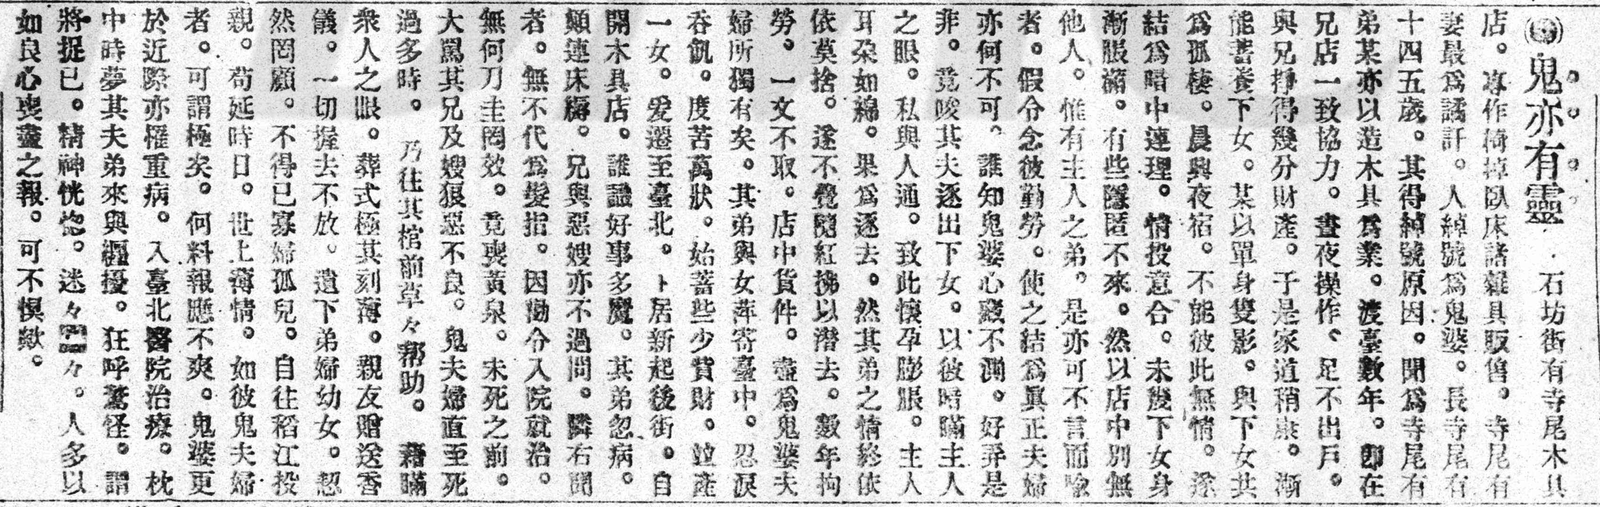 鬼亦有靈 石坊街有寺尾木具
店。專作椅棹臥床諸雜具販售。寺尾有
妻最爲譎訐。人綽號爲鬼婆。長寺尾有
十四五歲。其得綽號原因。聞爲寺尾有
弟某亦以造木具爲業。渡臺數年。即在
兄店一致協力。晝夜操作、足不出戶。
與兄掙得幾分財產。于是家道稍康。漸
能蓄養下女。某以單身隻影。與下女共
爲孤棲。晨興夜宿。不能彼此無情。遂
結爲暗中連理。情投意合。未幾下女身
漸脹滿。有些隱匿不來。然以店中別無
他人。惟有主人之弟。是亦可不言而喻
者。假令念彼勤勞。使之結爲眞正夫婦
亦何不可。誰知鬼婆心竅不測。好弄是
非。竟唆其夫逐出下女。以彼暗瞞主人
之眼。私與人通。致此懷孕膨脹。主人
耳朶如綿。果爲逐去。然其弟之情終依
依莫捨。遂不覺隨紅拂以潛去。數年拘
勞。一文不取。店中貨件。盡爲鬼婆夫
婦所獨有矣。其弟與女萍寄臺中。忍淚
呑飢。度苦萬狀。始蓄些少貲財。竝產
一女。爰遷至臺北。卜居新起後街。自
開木具店。誰識好事多魔。其弟忽病。
顛連床褥。兄與惡嫂亦不過問。隣右聞
者。無不代爲髮指。因勸令入院就治。
無何刀圭罔效。竟喪黃泉。未死之前。
大罵其兄及嫂狠惡不良。鬼夫婦直至死
過多時。乃往其棺前草々幫助。藉瞞
衆人之眼。葬式極其刻薄。親友贈送香
儀。一切握去不放。遺下弟婦幼女。恝
然罔顧。不得已寡婦孤兒。自往稻江投
親。苟延時日。世上薄情。如彼鬼夫婦
者。可謂極矣。何料報應不爽。鬼婆更
於近際亦罹重病。入臺北醫院治療。枕
中時夢其夫弟來與纒擾。狂呼驚怪。謂
將捉已。精神恍惚。迷々々。人多以
如良心喪盡之報。可不愼歟。